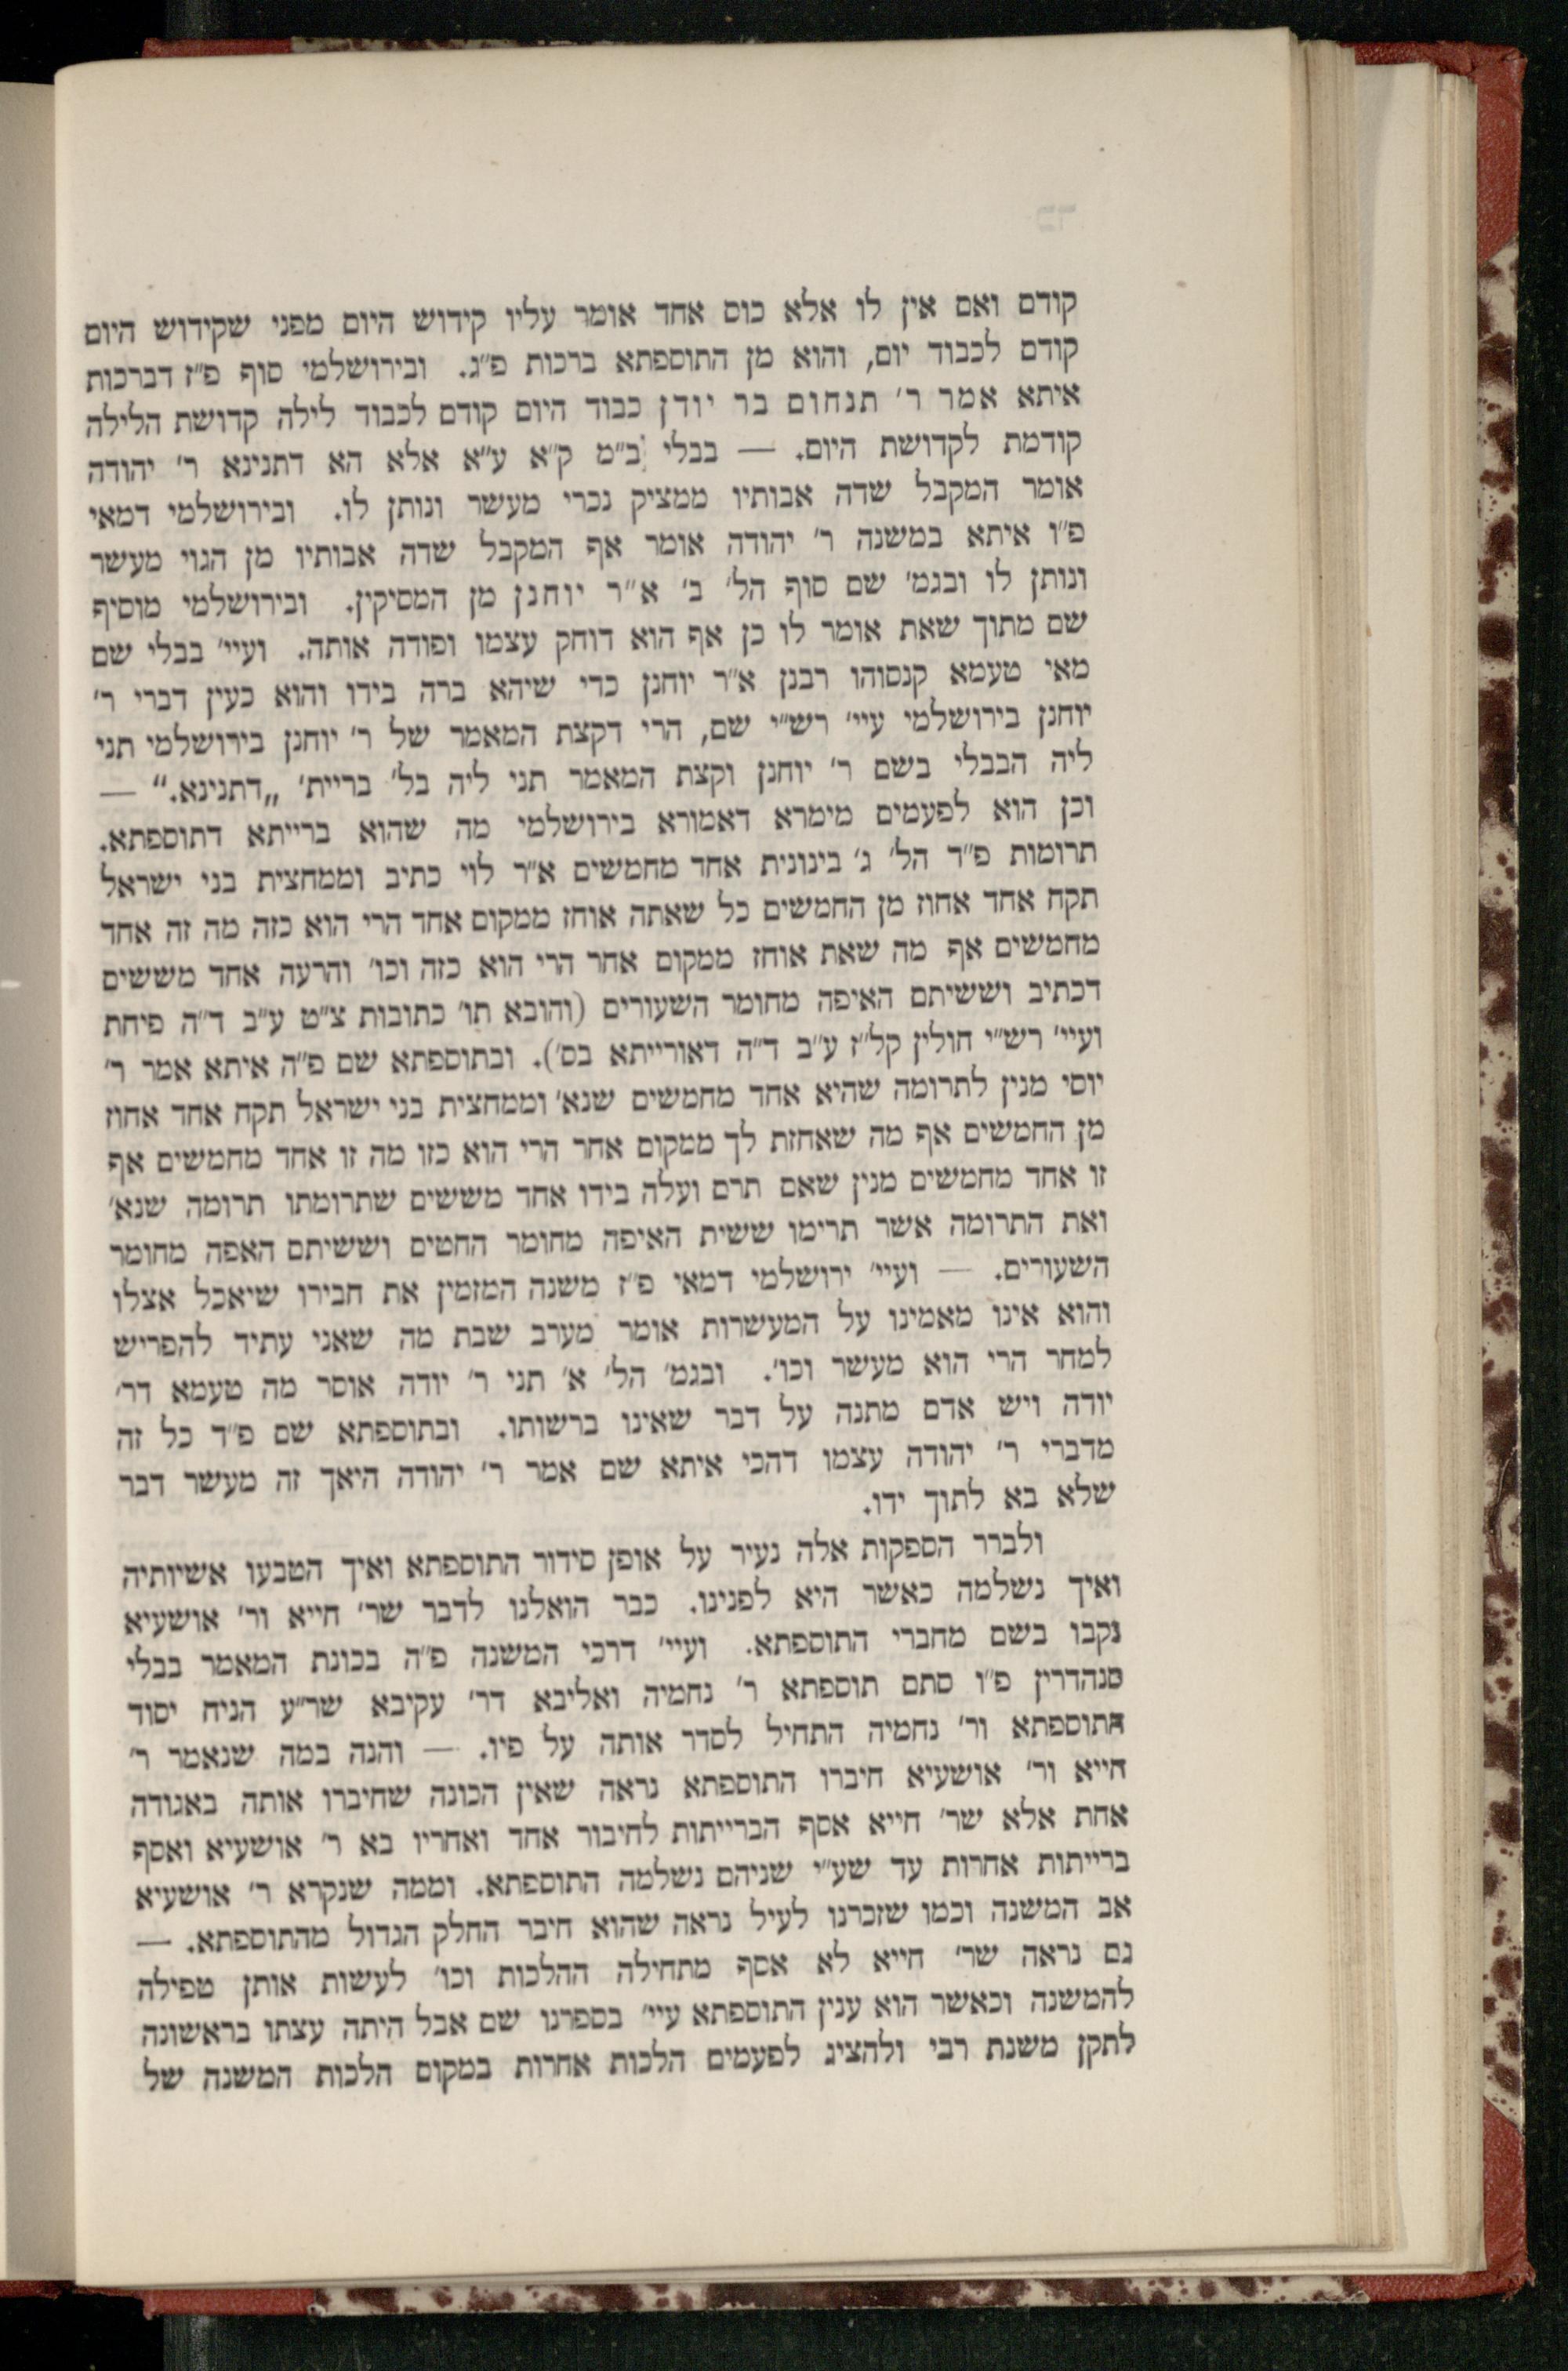 כד
קודם ואם אין לו אלא כוס אחד אומר עליו קידוש היום מפני שקידוש היום
קודם לכבוד יום, והוא מן התוספתא ברכות פ״ג. ובירושלמי סוף פ״ז דברכות
איתא אמר ר׳ תנחום בר יודן כבוד היום קודם לכבוד לילה קדושת הלילה
קודמת לקדושת היום. — בבלי ב״מ ק״א ע״א אלא הא דתנינא ר׳ יהודה
אומר המקבל שדה אבותיו ממציק נכרי מעשר ונותן לו. ובירושלמי דמאי
פ״ו איתא במשנה ר׳ יהודה אומר אף המקבל שדה אבותיו מן הגוי מעשר
ונותן לו ובגמ׳ שם סוף הל׳ ב׳ א״ר יוחנן מן המסיקין. ובירושלמי מוסיף
שם מתוך שאת אומר לו כן אף הוא דוחק עצמו ופודה אותה. ועיי׳ בבלי שם
מאי טעמא קנסוהו רבנן א״ר יוחנן כדי שיהא ברה בידו והוא כעין דברי ר׳
יוחנן בירושלמי עיי׳ רש״י שם, הרי דקצת המאמר של ר׳ יוחנן בירושלמי תני
ליה הבבלי בשם ר׳ יוחנן וקצת המאמר תני ליה בל׳ בריית׳ „דתנינא.“ —
וכן הוא לפעמים מימרא דאמורא בירושלמי מה שהוא ברייתא דתוספתא.
תרומות פ״ד הל׳ ג׳ בינונית אחד מחמשים א״ר לוי כתיב וממחצית בני ישראל
תקח אחד אחוז מן החמשים כל שאתה אוחז ממקום אחד הרי הוא כזה מה זה אחד
מחמשים אף מה שאת אוחז ממקום אחר הרי הוא כזה וכו׳ והרעה אחד מששים
דכתיב וששיתם האיפה מחומר השעורים (והובא תו׳ כתובות צ״ט ע״ב ד״ה פיחת
ועיי׳ רש״י חולין קל״ז ע״ב ד״ה דאורייתא בס׳). ובתוספתא שם פ״ה איתא אמר ר׳
יוסי מנין לתרומה שהיא אחד מחמשים שנא׳ וממחצית בני ישראל תקח אחד אחוז
מן החמשים אף מה שאחזת לך ממקום אחר הרי הוא כזו מה זו אחד מחמשים אף
זו אחד מחמשים מנין שאם תרם ועלה בידו אחד מששים שתרומתו תרומה שנא׳
ואת התרומה אשר תרימו ששית האיפה מחומר החטים וששיתם האפה מחומר
השעורים. — ועיי׳ ירושלמי דמאי פ״ז משנה המזמין את חבירו שיאכל אצלו
והוא אינו מאמינו על המעשרות אומר מערב שבת מה שאני עתיד להפריש
למחר הרי הוא מעשר וכו׳. ובגמ׳ הל׳ א׳ תני ר׳ יודה אוסר מה טעמא דר׳
יודה ויש אדם מתנה על דבר שאינו ברשותו. ובתוספתא שם פ״ד כל זה
מדברי ר׳ יהודה עצמו דהכי איתא שם אמר ר׳ יהודה היאך זה מעשר דבר
שלא בא לתוך ידו.
ולברר הספקות אלה נעיר על אופן סידור התוספתא ואיך הטבעו אשיותיה
ואיך נשלמה כאשר היא לפנינו. כבר הואלנו לדבר שר׳ חייא ור׳ אושעיא
נקבו בשם מחברי התוספתא. ועיי׳ דרכי המשנה פ״ה בכונת המאמר בבלי
סנהדרין פ״ו סתם תוספתא ר׳ נחמיה ואליבא דר׳ עקיבא שר״ע הניח יסוד
התוספתא ור׳ נחמיה התחיל לסדר אותה על פיו. — והנה במה שנאמר ר׳
חייא ור׳ אושעיא חיברו התוספתא נראה שאין הכונה שחיברו אותה באגודה
אחת אלא שר׳ חייא אסף הברייתות לחיבור אחד ואחריו בא ר׳ אושעיא ואסף
ברייתות אחרות עד שע״י שניהם נשלמה התוספתא. וממה שנקרא ר׳ אושעיא
אב המשנה וכמו שזכרנו לעיל נראה שהוא חיבר החלק הגדול מהתוספתא. —
גם נראה שר׳ חייא לא אסף מתחילה ההלכות וכו׳ לעשות אותן טפילה
להמשנה וכאשר הוא ענין התוספתא עיי׳ בספרנו שם אבל היתה עצתו בראשונה
לתקן משנת רבי ולהציג לפעמים הלכות אחרות במקום הלכות המשנה של